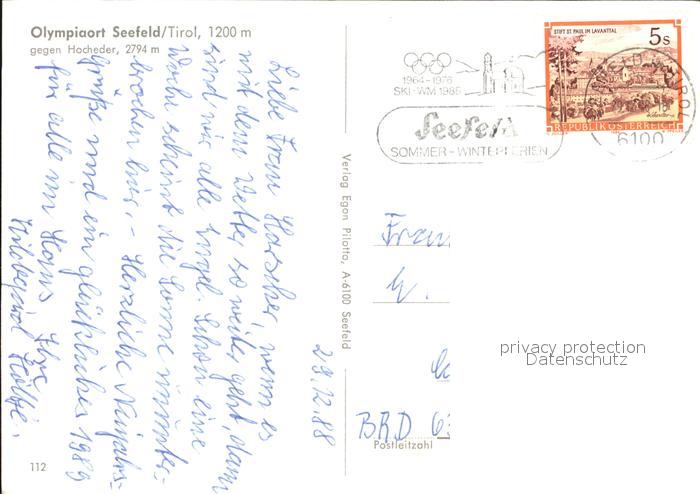 Olympiaort Seefeld/Tirol, 1200 m
gegen Hocheder, 2794 m
29.12.88
Liebe Frau Horscher, wenn es
mit dem Wetter so weiter geht, dann
sind wir alle Engel. Schon eine
Woche scheint die Sonne ununter-
brochen hier. - Herzliche Neujahrs-
grüße und ein glückliches 1989
für alle im Haus Ihre
Hildegard
112
Verlag Egon Pilotta, A-6100 Seefeld
1964-1976
SKI-WM 1985
Seefeld
SOMMER-WINTERFERIEN
STIFT ST. PAUL IM LAVANTTAL
5s
REPUBLIK ÖSTERREICH
6100
Frau
BRD
Postleitzahl
privacy protection
Datenschutz